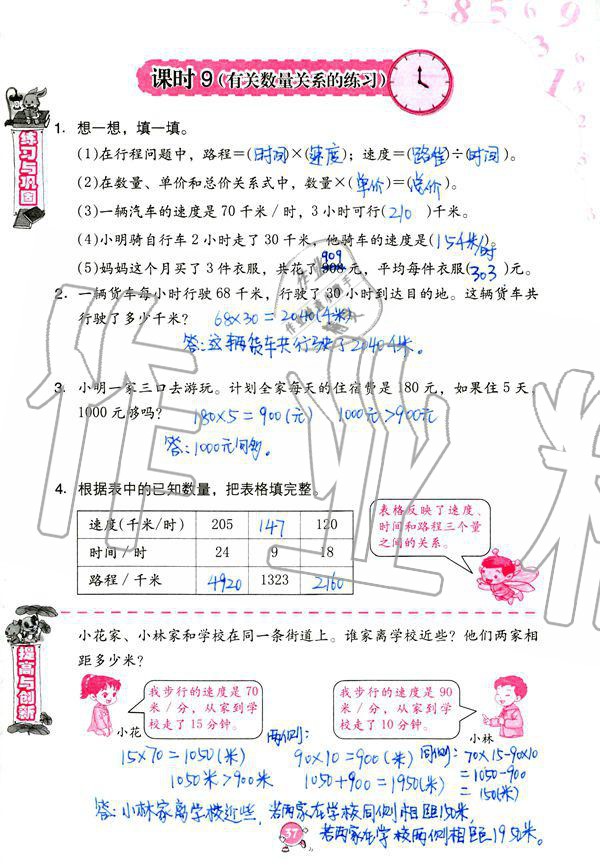 课时9(有关数量关系的练习)
练习与巩固
1. 想一想，填一填。
(1)在行程问题中，路程=(时间)×(速度)；速度=(路程)÷(时间)。
(2)在数量、单价和总价关系式中，数量×(单价)=(总价)。
(3)一辆汽车的速度是70千米/时，3小时可行(210)千米。
(4)小明骑自行车2小时走了30千米，他骑车的速度是(15千米/时)
909
(5)妈妈这个月买了3件衣服，共花了908元，平均每件衣服(303)元。
2. 一辆货车每小时行驶68千米，行驶了30小时到达目的地。这辆货车共
行驶了多少千米？ 68×30=2040(千米)
答:这辆货车共行驶了2040千米。
3. 小明一家三口去游玩。计划全家每天的住宿费是180元，如果住5天，
1000元够吗？ 180×5=900(元) 1000元>900元
答:1000元间够。
4. 根据表中的已知数量，把表格填完整。
速度(千米/时) 205 147 120
时间/时 24 9 18
路程/千米 4920 1323 2160
表格反映了速度、
时间和路程三个量
之间的关系。
提高与创新
小花家、小林家和学校在同一条街道上。谁家离学校近些？他们两家相
距多少米？
我步行的速度是70
米/分，从家到学
校走了15分钟。
小花
我步行的速度是90
米/分，从家到学
校走了10分钟。
小林
15×70=1050(米)
1050米>900米
两侧:
90×10=900(米)
1050+900=1950(米)
同侧: 70×15-90×10
=1050-900
=150(米)
答:小林家离学校近些,若两家在学校同侧相距150米,
若两家在学校两侧相距1950米。
57
作业精